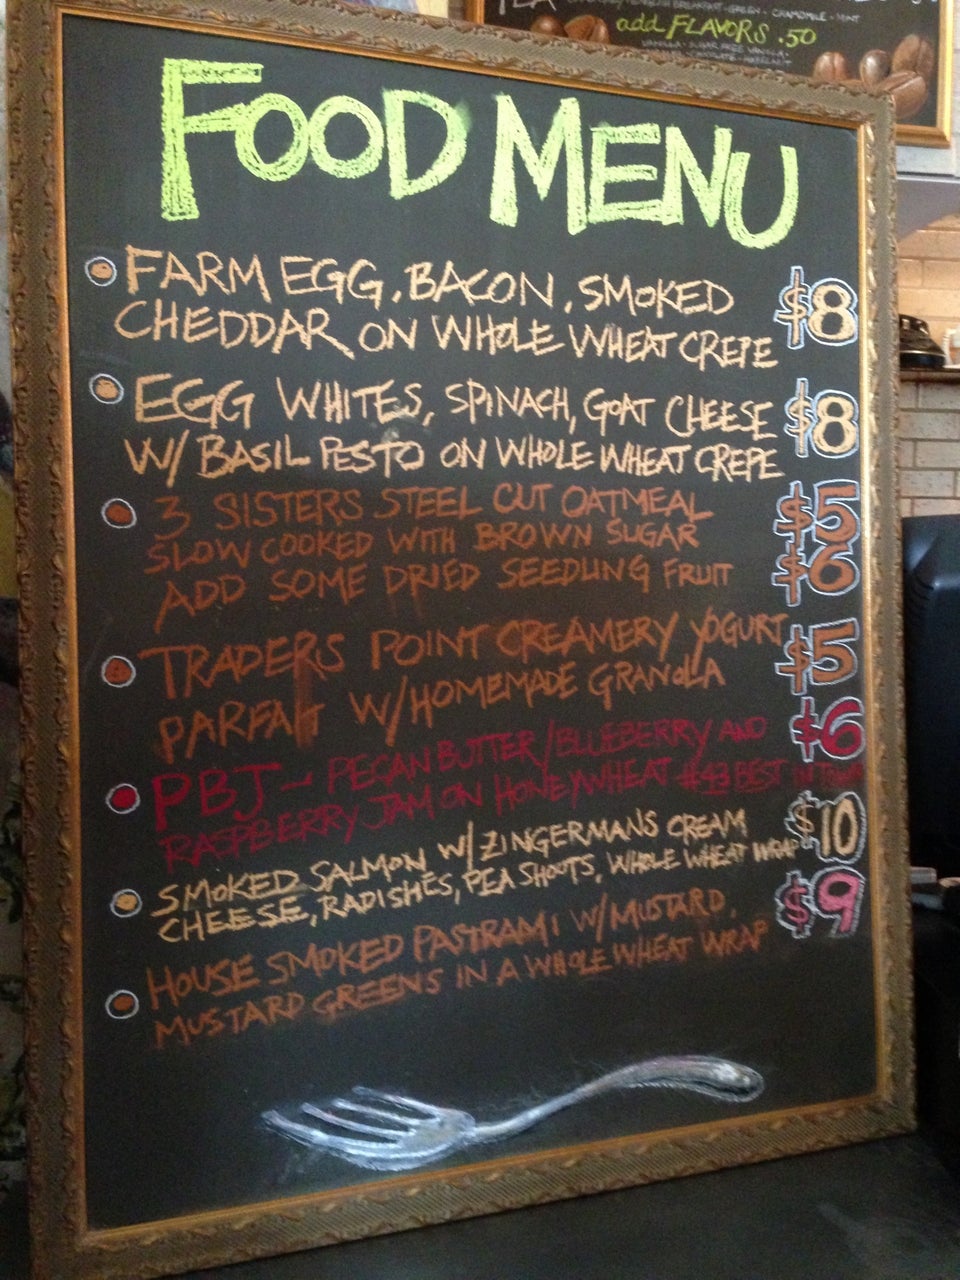 TEA
add FLAVORS .50
FOOD MENU
FARM EGG, BACON, SMOKED $8
CHEDDAR ON WHOLE WHEAT CREPE
EGG WHITES, SPINACH, GOAT CHEESE $8
W/ BASIL PESTO ON WHOLE WHEAT CREPE
3 SISTERS STEEL CUT OATMEAL $5
SLOW COOKED WITH BROWN SUGAR
ADD SOME DRIED SEEDLING FRUIT $6
TRADERS POINT CREAMERY YOGURT $5
PARFAIT W/HOMEMADE GRANOLA
PBJ - PECAN BUTTER/BLUEBERRY AND $6
RASPBERRY JAM ON HONEYWHEAT #43 BEST IN TOWN
SMOKED SALMON W/ZINGERMANS CREAM $10
CHEESE, RADISHES, PEA SHOOTS, WHOLE WHEAT WRAP
HOUSE SMOKED PASTRAMI W/MUSTARD, $9
MUSTARD GREENS IN A WHOLE WHEAT WRAP